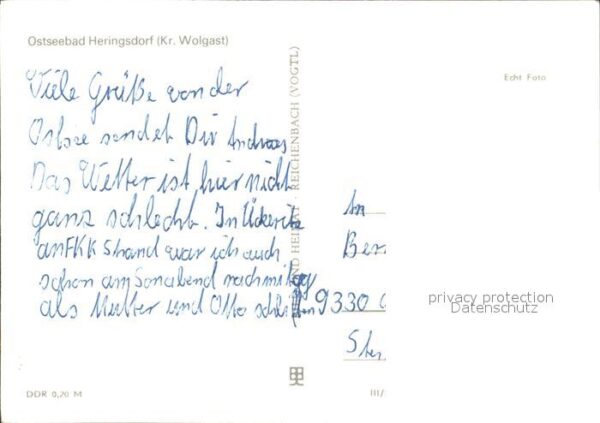 Ostseebad Heringsdorf (Kr. Wolgast)
Echt Foto
Viele Grüße von der
Ostsee sendet Dir Andreas
Das Wetter ist hier nicht
ganz schlecht. In Ückeritz
an FKK Strand war ich auch
schon am Sonabend nachmittag
als Mutter und Otto schliefen
BILD UND HEIMAT · REICHENBACH (VOGTL)
An
Ber
9330
privacy protection
Datenschutz
DDR 0,20 M
III/